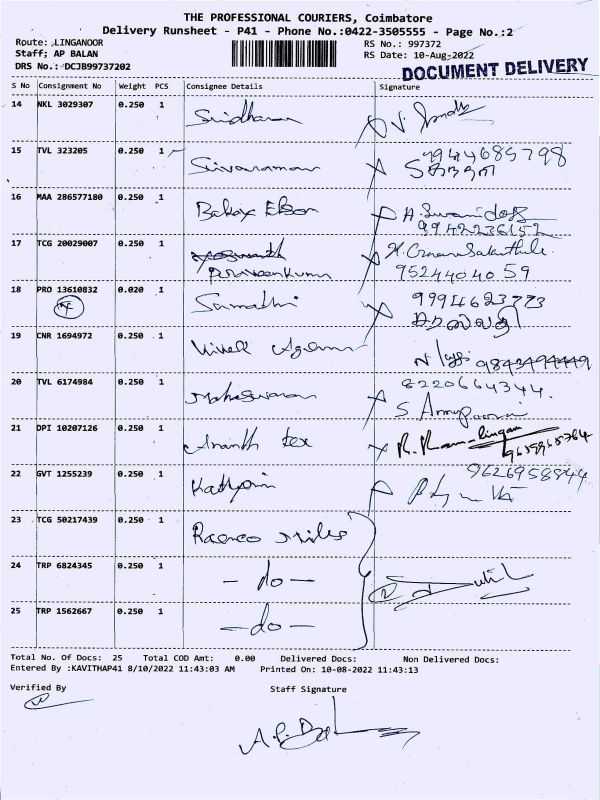 THE PROFESSIONAL COURIERS, Coimbatore
Delivery Runsheet - P41 - Phone No.:0422-3505555 - Page No.:2
Route: LINGANOOR
Staff; AP BALAN
DRS No.: DCJB99737202
RS No.: 997372
RS Date: 10-Aug-2022
DOCUMENT DELIVERY
S No Consignment No Weight PCS Consignee Details Signature
14 NKL 3029307 0.250 1 Sridharan
15 TVL 323205 0.250 1 Sivaraman 9944685798
16 MAA 286577180 0.250 1 9942236152
17 TCG 20029007 0.250 1 Praveenkumar 9524404059
18 PRO 13610832 0.020 1 Sumathi 9994623773
19 CNR 1694972 0.250 1 Vivek 9843494449
20 TVL 6174984 0.250 1 Maheswaran 8220664344.
21 DPI 10207126 0.250 1 Ananth tex
22 GVT 1255239 0.250 1 9626958844
23 TCG 50217439 0.250 1
24 TRP 6824345 0.250 1 - do -
25 TRP 1562667 0.250 1 - do -
Total No. Of Docs: 25 Total COD Amt: 0.00 Delivered Docs: Non Delivered Docs:
Entered By :KAVITHAP41 8/10/2022 11:43:03 AM Printed On: 10-08-2022 11:43:13
Verified By Staff Signature